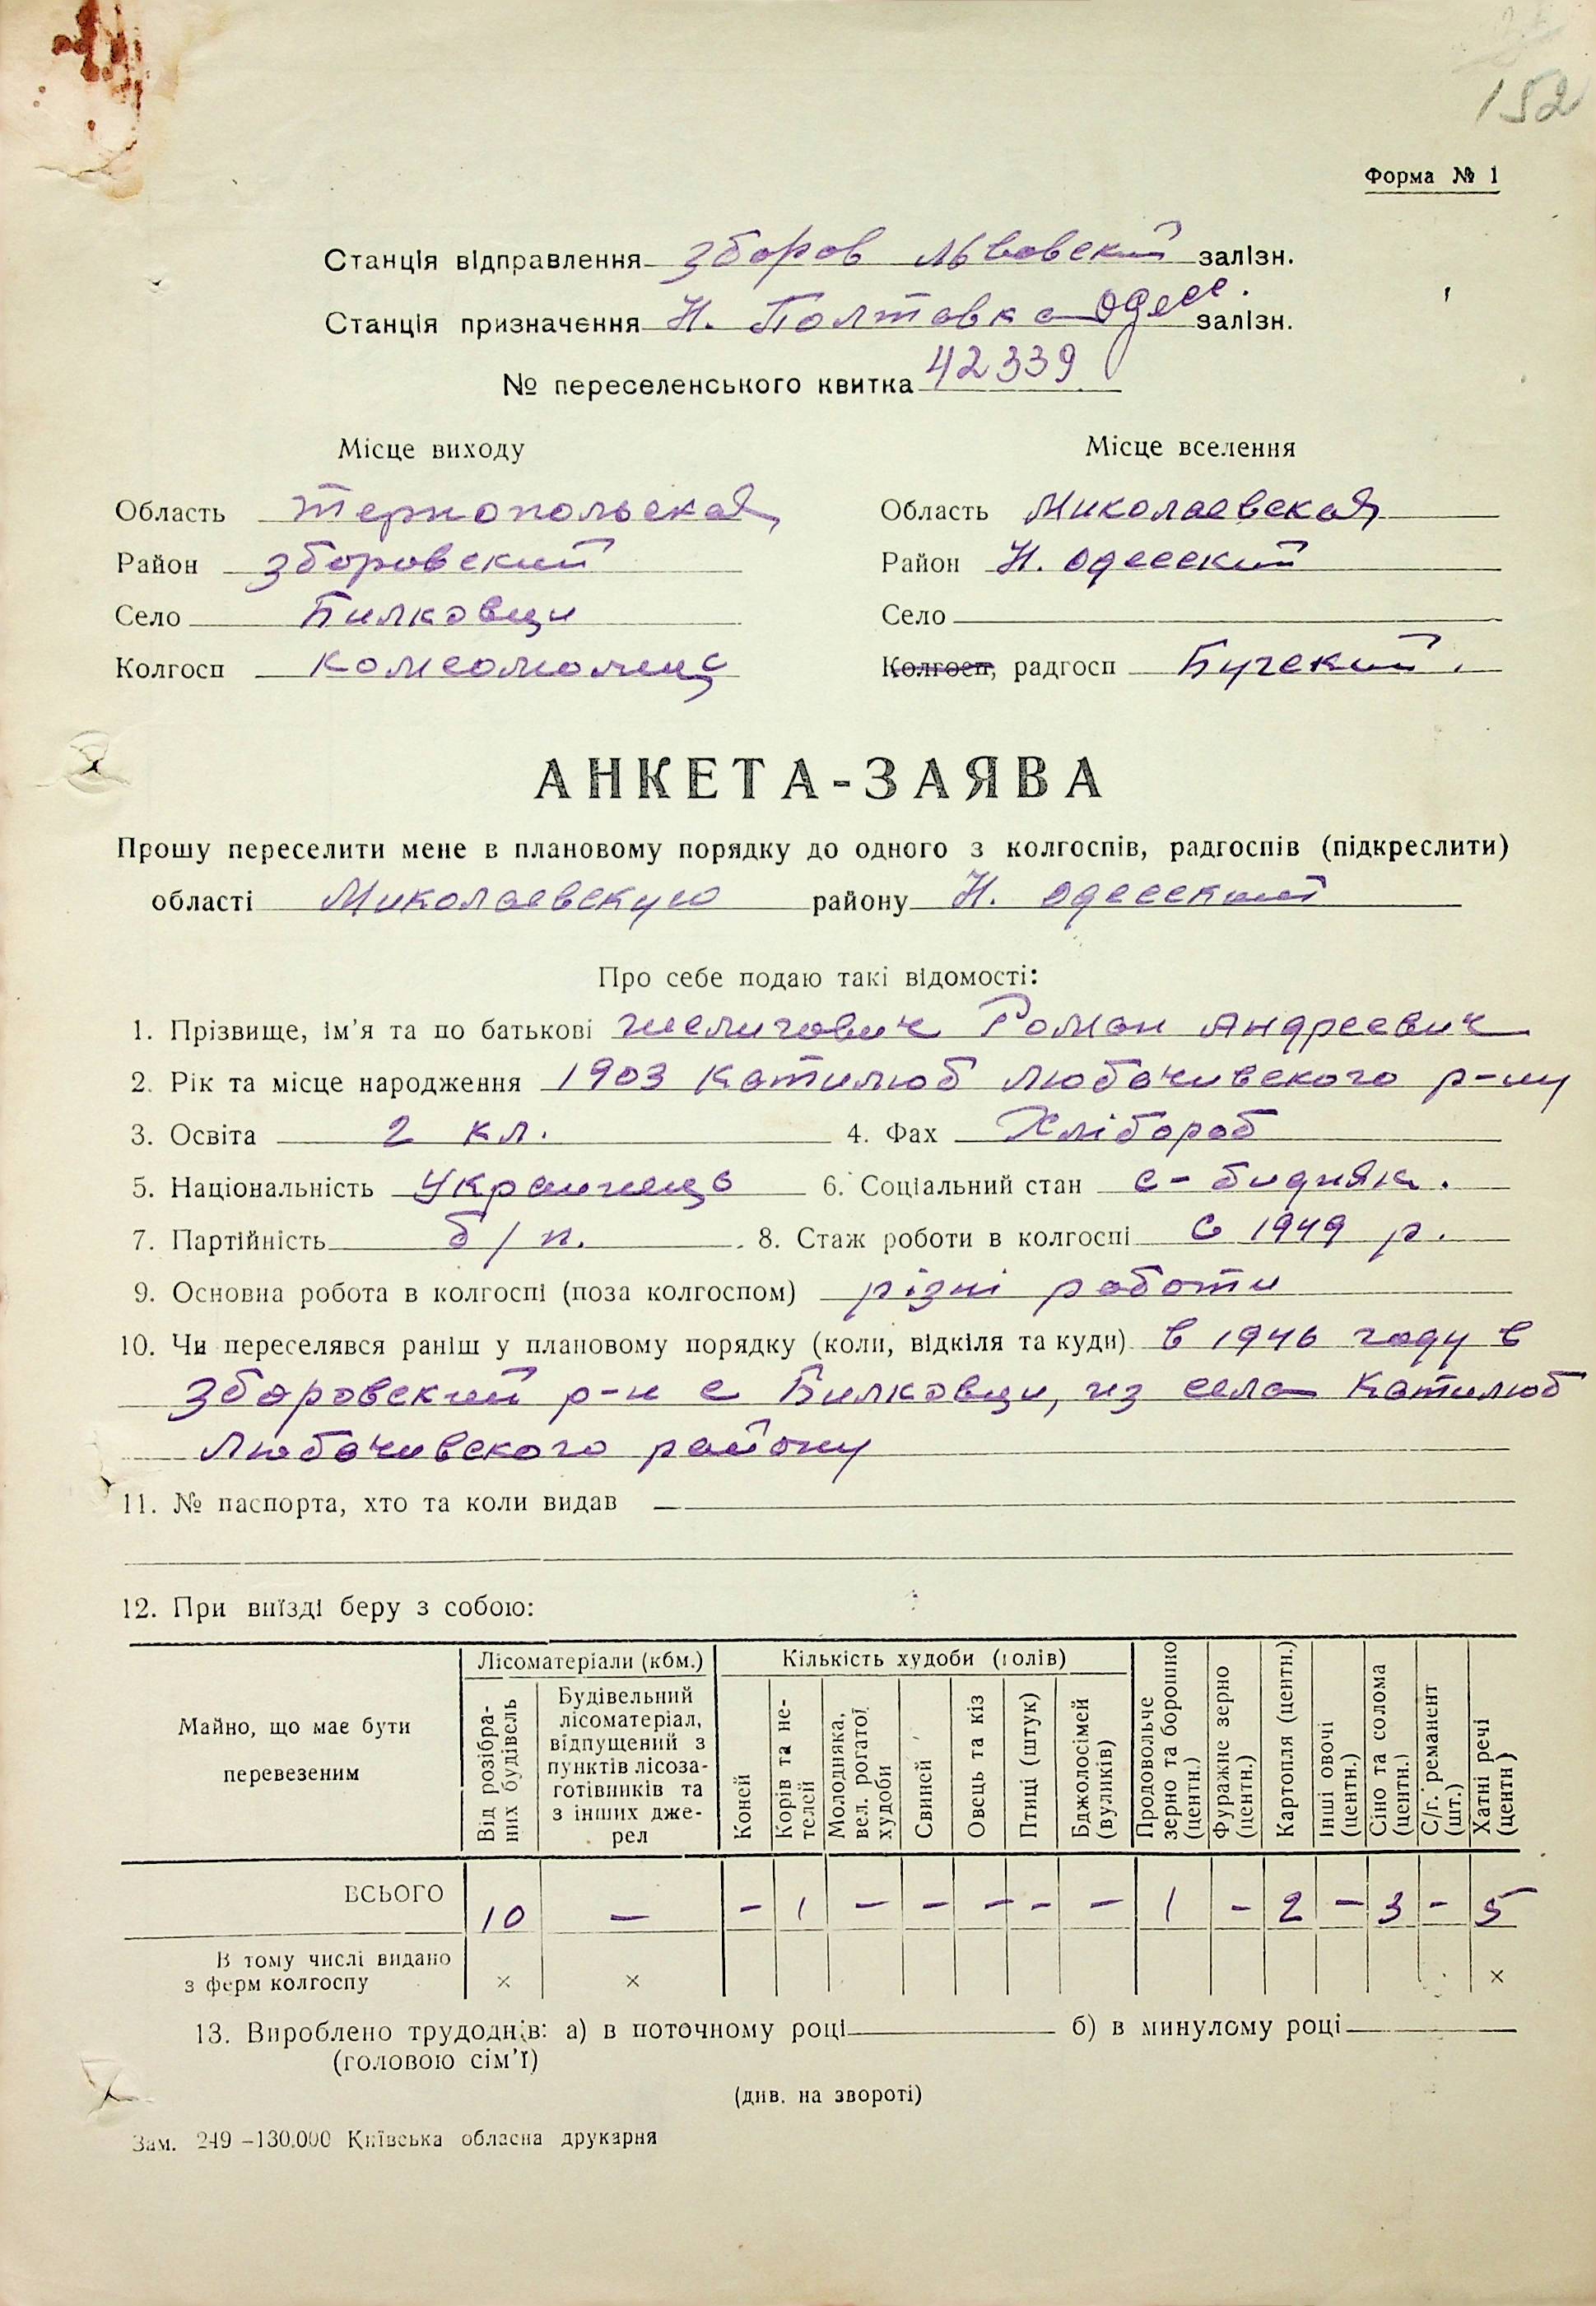 152
Форма № 1
Станція відправлення Зборов Львовский залізн.
Станція призначення Н. Полтавка Одесс. залізн.
№ переселенського квитка 42339
Місце виходу Місце вселення
Область Тернопольская Область Миколаевская
Район Зборовский Район Н. Одесский
Село Билковци Село
Колгосп Комсомолец Колгосп, радгосп Бугский.
АНКЕТА-ЗАЯВА
Прошу переселити мене в плановому порядку до одного з колгоспів, радгоспів (підкреслити)
області Миколаевскую району Н. Одесский
Про себе подаю такі відомості:
1. Прізвище, ім’я та по батькові Шелигович Роман Андреевич
2. Рік та місце народження 1903 Катилюб Любачивского р-ну
3. Освіта 2 кл. 4. Фах Хлібороб
5. Національність Украинець 6. Соціальний стан с-бидняк.
7. Партійність б/п. 8. Стаж роботи в колгоспі С 1949 р.
9. Основна робота в колгоспі (поза колгоспом) різні работи
10. Чи переселявся раніш у плановому порядку (коли, відкіля та куди) в 1946 году в
Зборовский р-н с Билковци, из села Катилюб
Любачивского району
11. № паспорта, хто та коли видав —
12. При виїзді беру з собою:
Майно, що має бути перевезеним
Лісоматеріали (кбм.)
Від розібраних будівель
Будівельний лісоматеріал, відпущений з пунктів лісозаготівників та з інших джерел
Кількість худоби (голів)
Коней
Корів та нетелей
Молодняка, вел. рогатої худоби
Свиней
Овець та кіз
Птиці (штук)
Бджолосімей (вуликів)
Продовольче зерно та борошно (центн.)
Фуражне зерно (центн.)
Картопля (центн.)
Інші овочі (центн.)
Сіно та солома (центн.)
С/г. реманент (шт.)
Хатні речі (центн)
ВСЬОГО 10 — - 1 - - - - - 1 - 2 - 3 - 5
В тому числі видано
з ферм колгоспу × × ×
13. Вироблено трудоднів: а) в поточному році б) в минулому році
(головою сім’ї)
(див. на звороті)
Зам. 249–130.000 Київська обласна друкарня